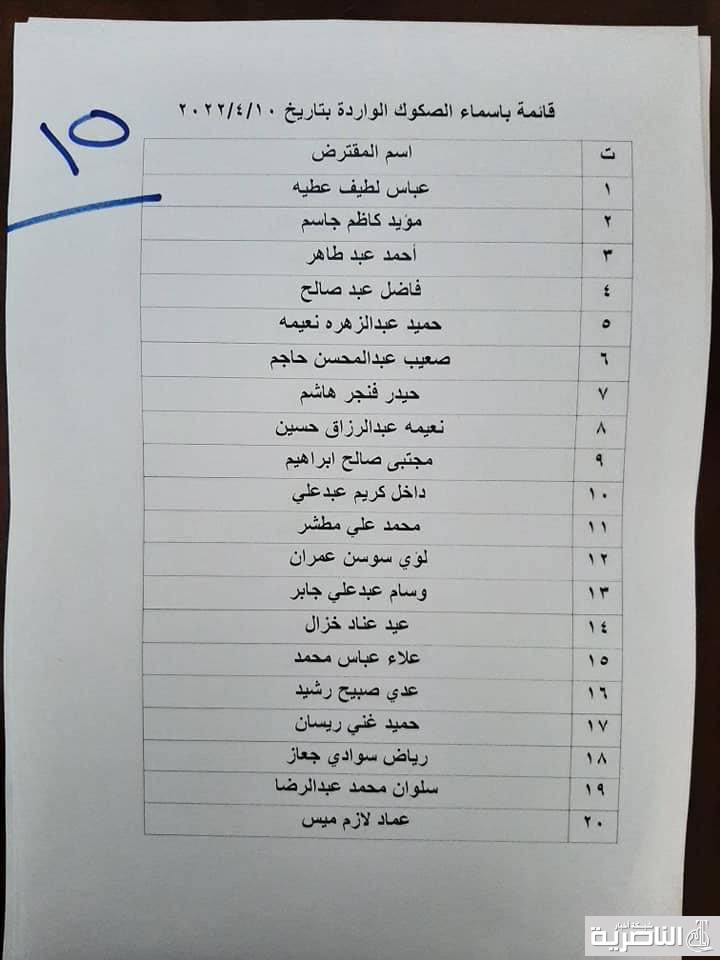 قائمة باسماء الصكوك الواردة بتاريخ ٢٠٢٢/٤/١٠
ت اسم المقترض
١ عباس لطيف عطيه
٢ مؤيد كاظم جاسم
٣ أحمد عبد طاهر
٤ فاضل عبد صالح
٥ حميد عبدالزهره نعيمه
٦ صعيب عبدالمحسن حاجم
٧ حيدر فنجر هاشم
٨ نعيمه عبدالرزاق حسين
٩ مجتبى صالح ابراهيم
١٠ داخل كريم عبدعلي
١١ محمد علي مطشر
١٢ لؤي سوسن عمران
١٣ وسام عبدعلي جابر
١٤ عيد عناد خزال
١٥ علاء عباس محمد
١٦ عدي صبيح رشيد
١٧ حميد غني ريسان
١٨ رياض سوادي جعاز
١٩ سلوان محمد عبدالرضا
٢٠ عماد لازم ميس
١٥
شبكة اخبار
الناصرية